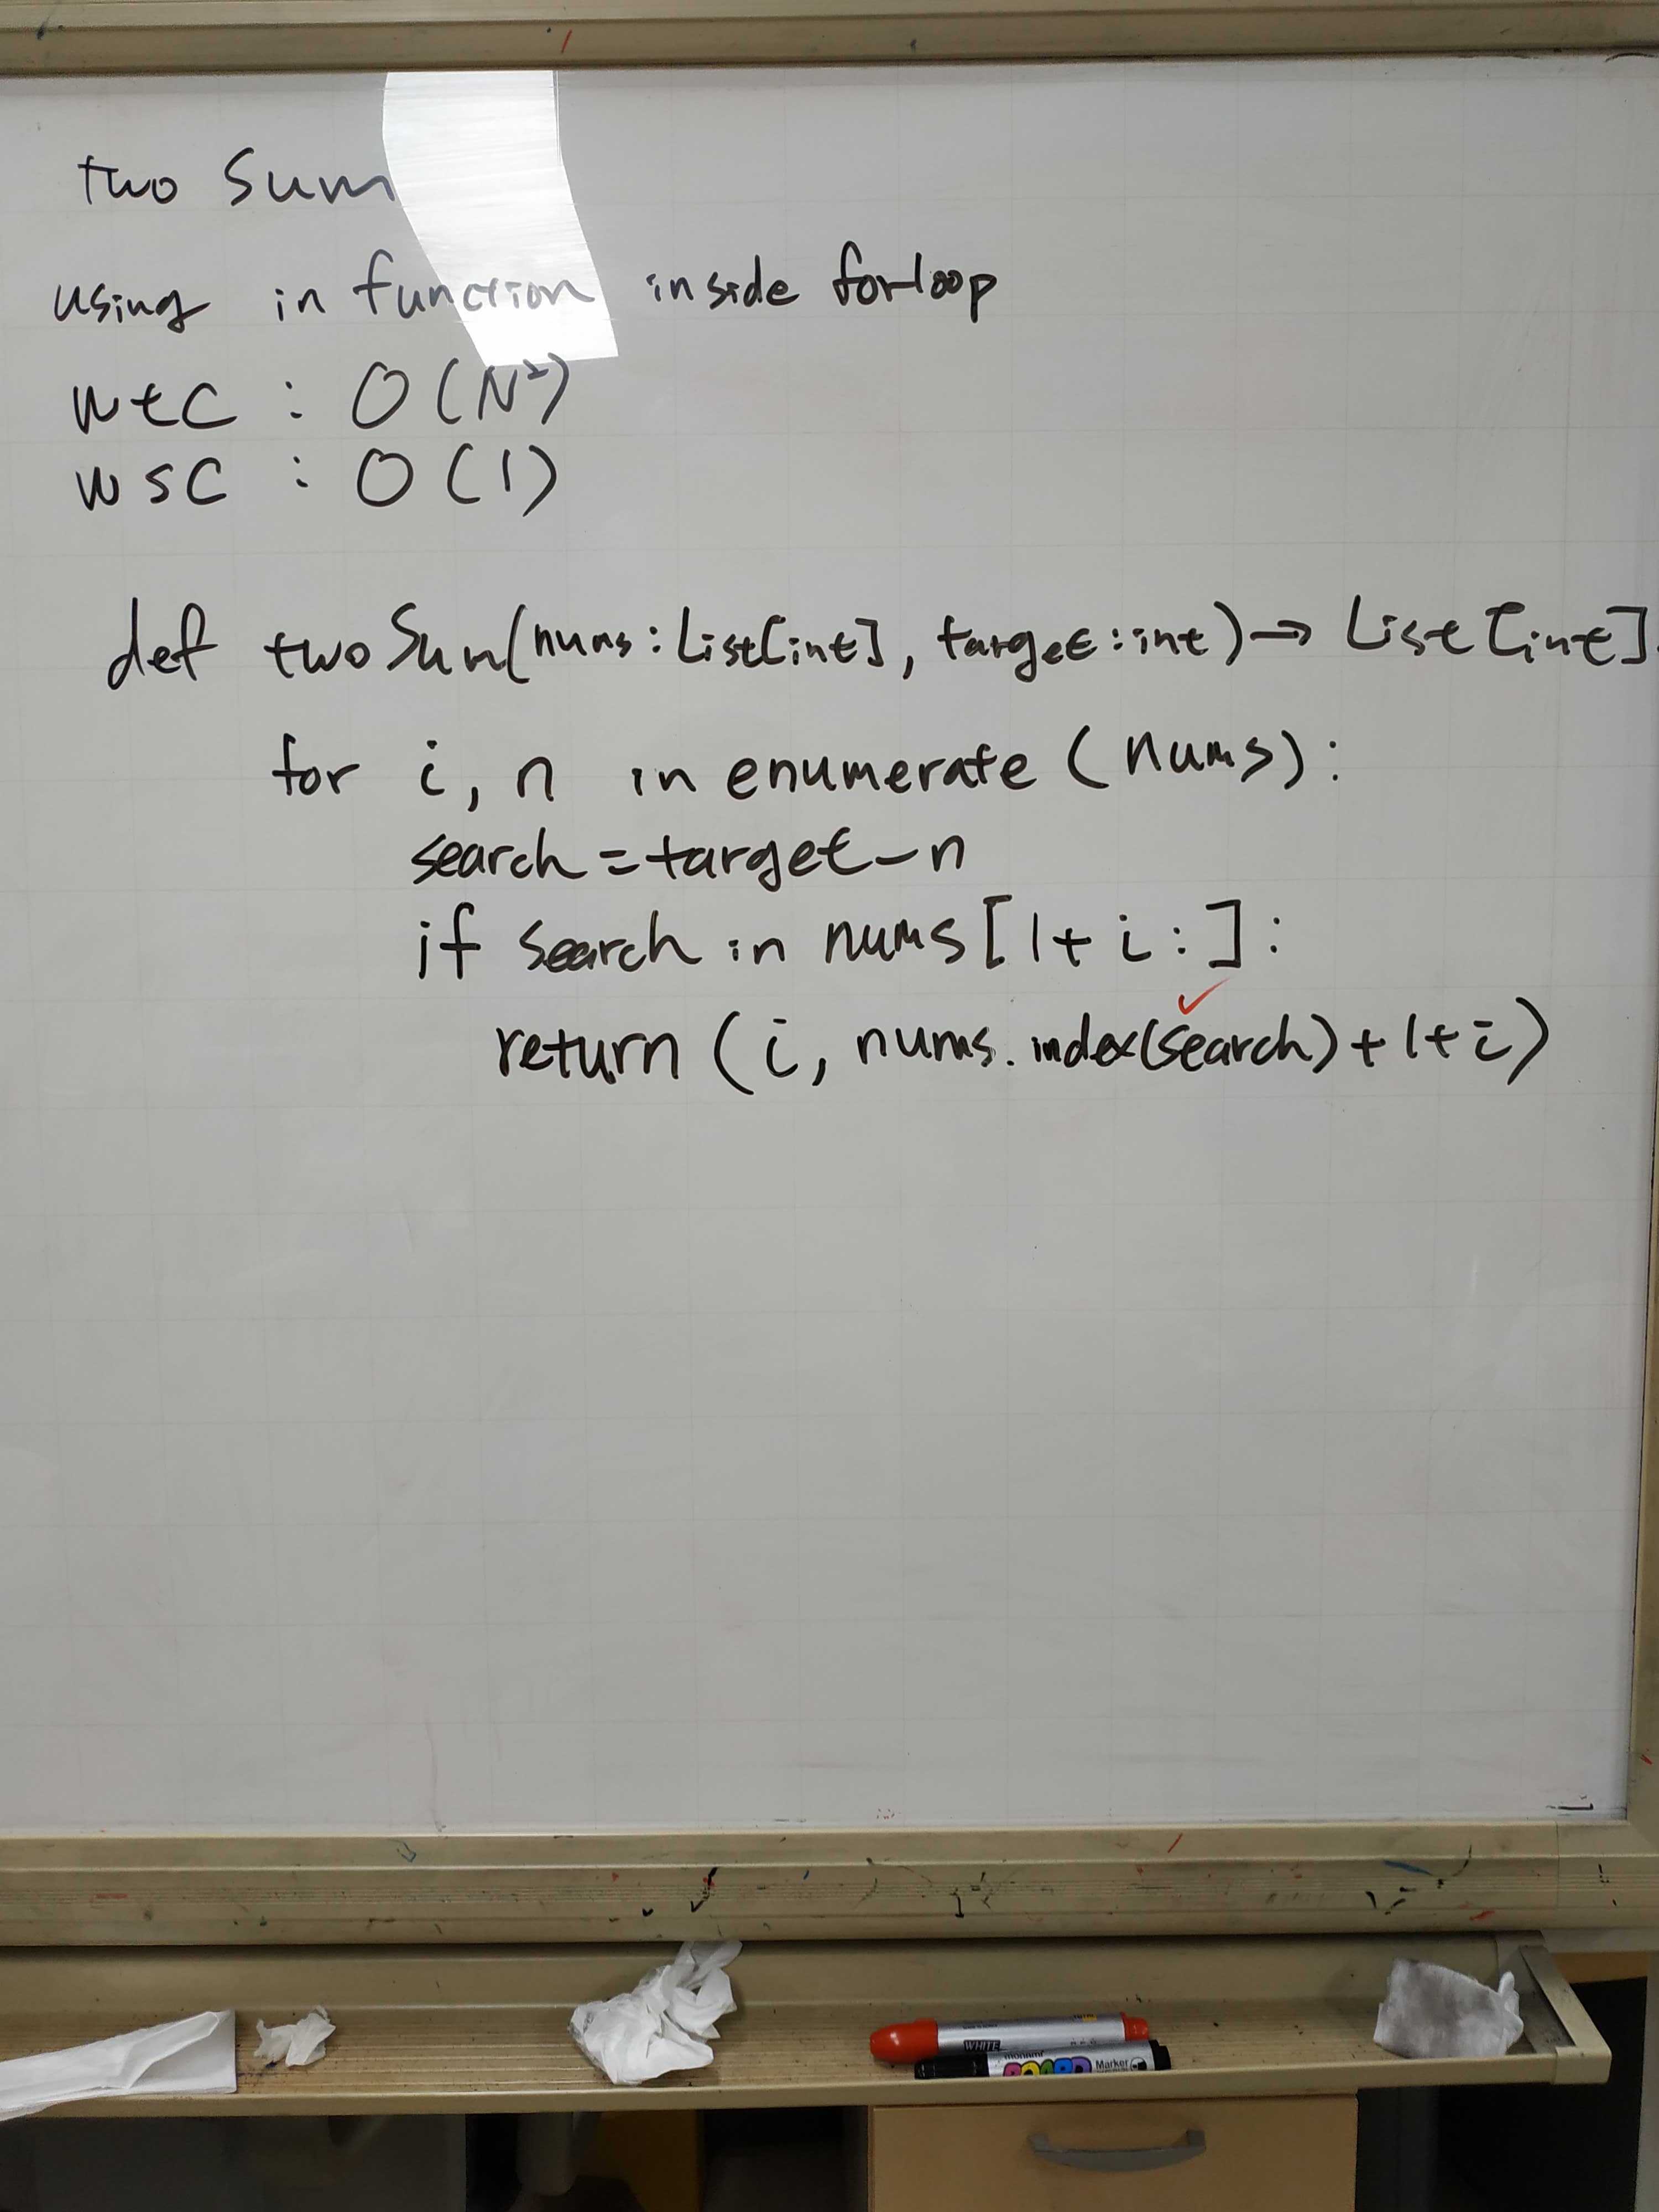 two Sum
using in function inside for loop
wtc : O(N²)
wsc : O(1)
def twoSum(nums: List[int], target: int) → List[int].
for i, n in enumerate (nums):
search = target - n
if search in nums[1+i:]:
return (i, nums.index(search)+1+i)
WHITE
monami
BOARD Marker